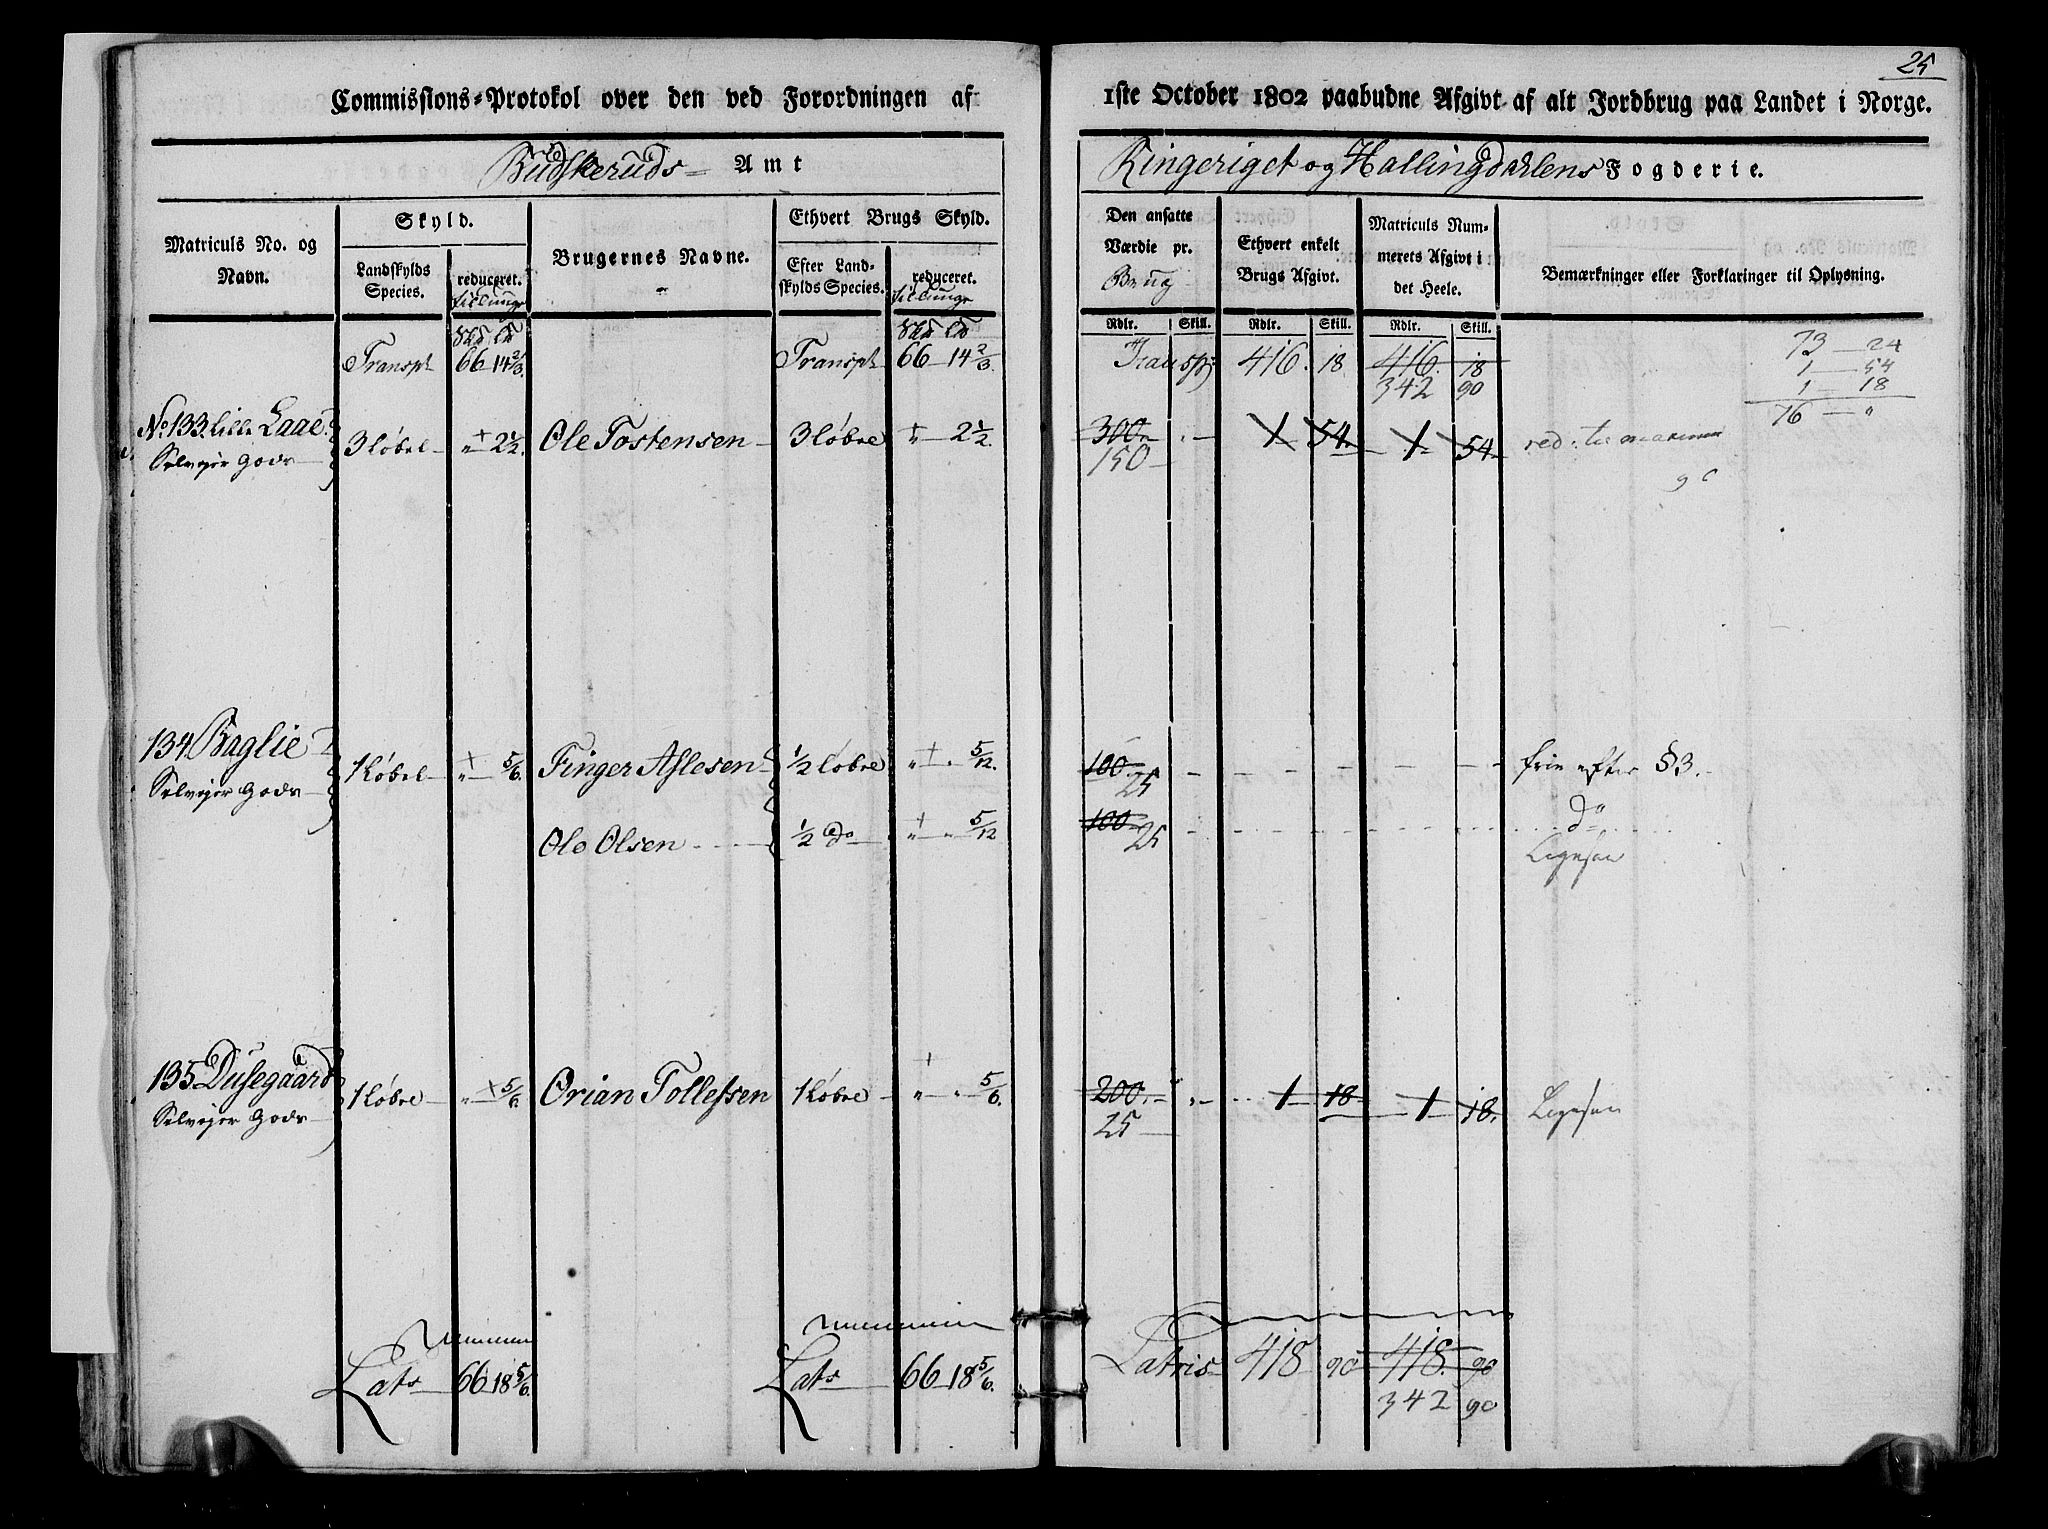 25
Commissions-Protokol over den ved Forordningen af 1ste October 1802 paabudne Afgivt af alt Jordbrug paa Landet i Norge.
Budskeruds Amt
Ringeriget og Hallingdahlens Fogderie.
Matriculs No. og Navn.
Skyld.
Landskylds Species.
reduceret.
Brugernes Navne.
Ethvert Brugs Skyld.
Efter Landskylds Species.
reduceret.
Den ansatte Værdie pr. Brug
Ethvert enkelt Brugs Afgivt.
Matriculs Nummerets Afgivt i det Heele.
Bemærkninger eller Forklaringer til Oplysning.
Rdlr. Skill. Rdlr. Skill. Rdlr. Skill.
Transpt 66 14 2/3. Transpt 66 14 2/3. Transp: 416. 18 416. 18
342 90
73 — 24
1 — 54
1 — 18
76 — "
No 133. Lille Laae 3 Løbel " 2 1/2. Ole Tostensen 3 Løbre " 2 1/2. 300 " 1 54. 1 54
Selveier Gods 150
134 Baglie 1 Løbel " 5/6. Finger Aslesen 1/2 Løbre " " 5/12. 100. frie efter § 3.
Selveier Gods 25
Ole Olsen 1/2 do " " 5/12 100 do
25
135 Dusegaard 1 Løbre " 5/6. Orian Tollefsen 1 Løbre " " 5/6. 200. " 1 18 1 18.
Selveier Gods 25
Lats 66 18 5/6. Lats 66 18 5/6. Latris 418 90 418. 90
342 90